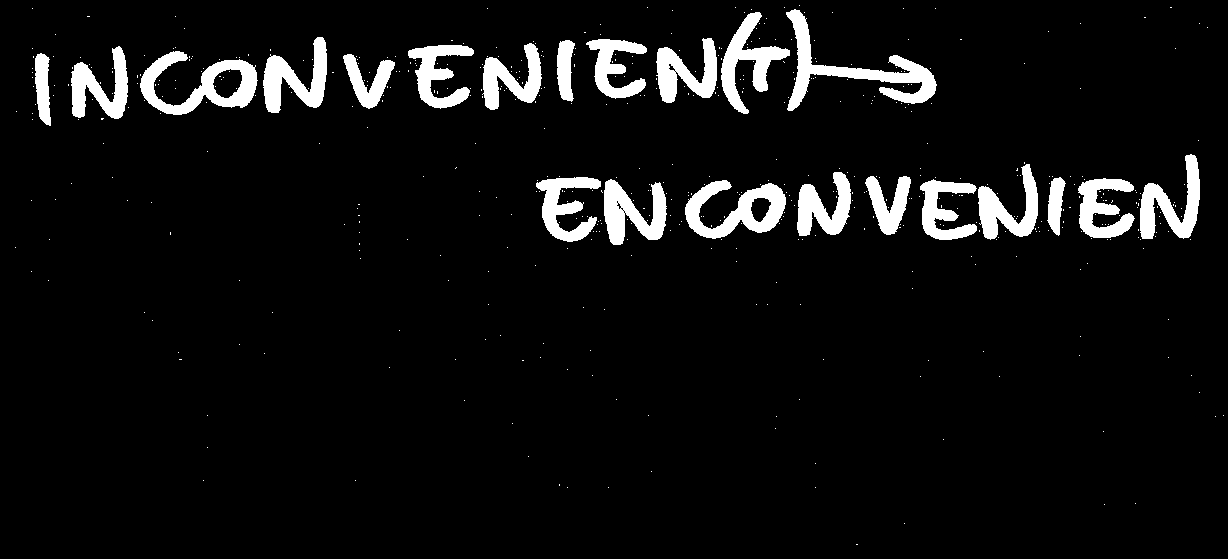 INCONVENIEN(T) →
ENCONVENIEN